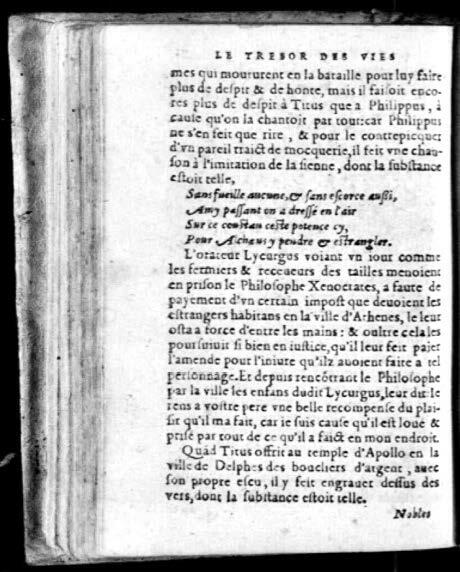 LE TRESOR DES VIES
mes qui moururent en la bataille pour luy faire
plus de despit & de honte, mais il faisoit enco-
res plus de despit à Titus que a Philippus, à
cause qu'on la chantoit par tout: car Philippus
ne s'en feit que rire, & pour le contrepicquer
d'vn pareil traict de mocquerie, il feit vne chan-
son à l'imitation de la sienne, dont la substance
estoit telle,
Sans fueille aucune, & sans escorce aussi,
Amy passant on a dressé en l'air
Sur ce constau ceste potence cy,
Pour Alchaus y pendre & estrangler.
L'orateur Lycurgus voiant vn iour comme
les fermiers & receueurs des tailles menoient
en prison le Philosophe Xenocrates, a faute de
payement d'vn certain impost que deuoient les
estrangers habitans en la ville d'Athenes, le leur
osta a force d'entre les mains: & oultre cela les
poursuiuit si bien en iustice, qu'il leur feit paier
l'amende pour l'iniure qu'ilz auoient faite a tel
personnage. Et depuis rencõtrant le Philosophe
par la ville les enfans dudit Lycurgus, leur dit: Ie
rens a vostre pere vne belle recompense du plai-
sir qu'il m'a fait, car ie suis cause qu'il est loué &
prisé par tout de ce qu'il a faict en mon endroit.
Quãd Titus offrit au temple d'Apollo en la
ville de Delphes des boucliers d'argent, auec
son propre escu, il y feit engrauer dessus des
vers, dont la substance estoit telle.
Nobles